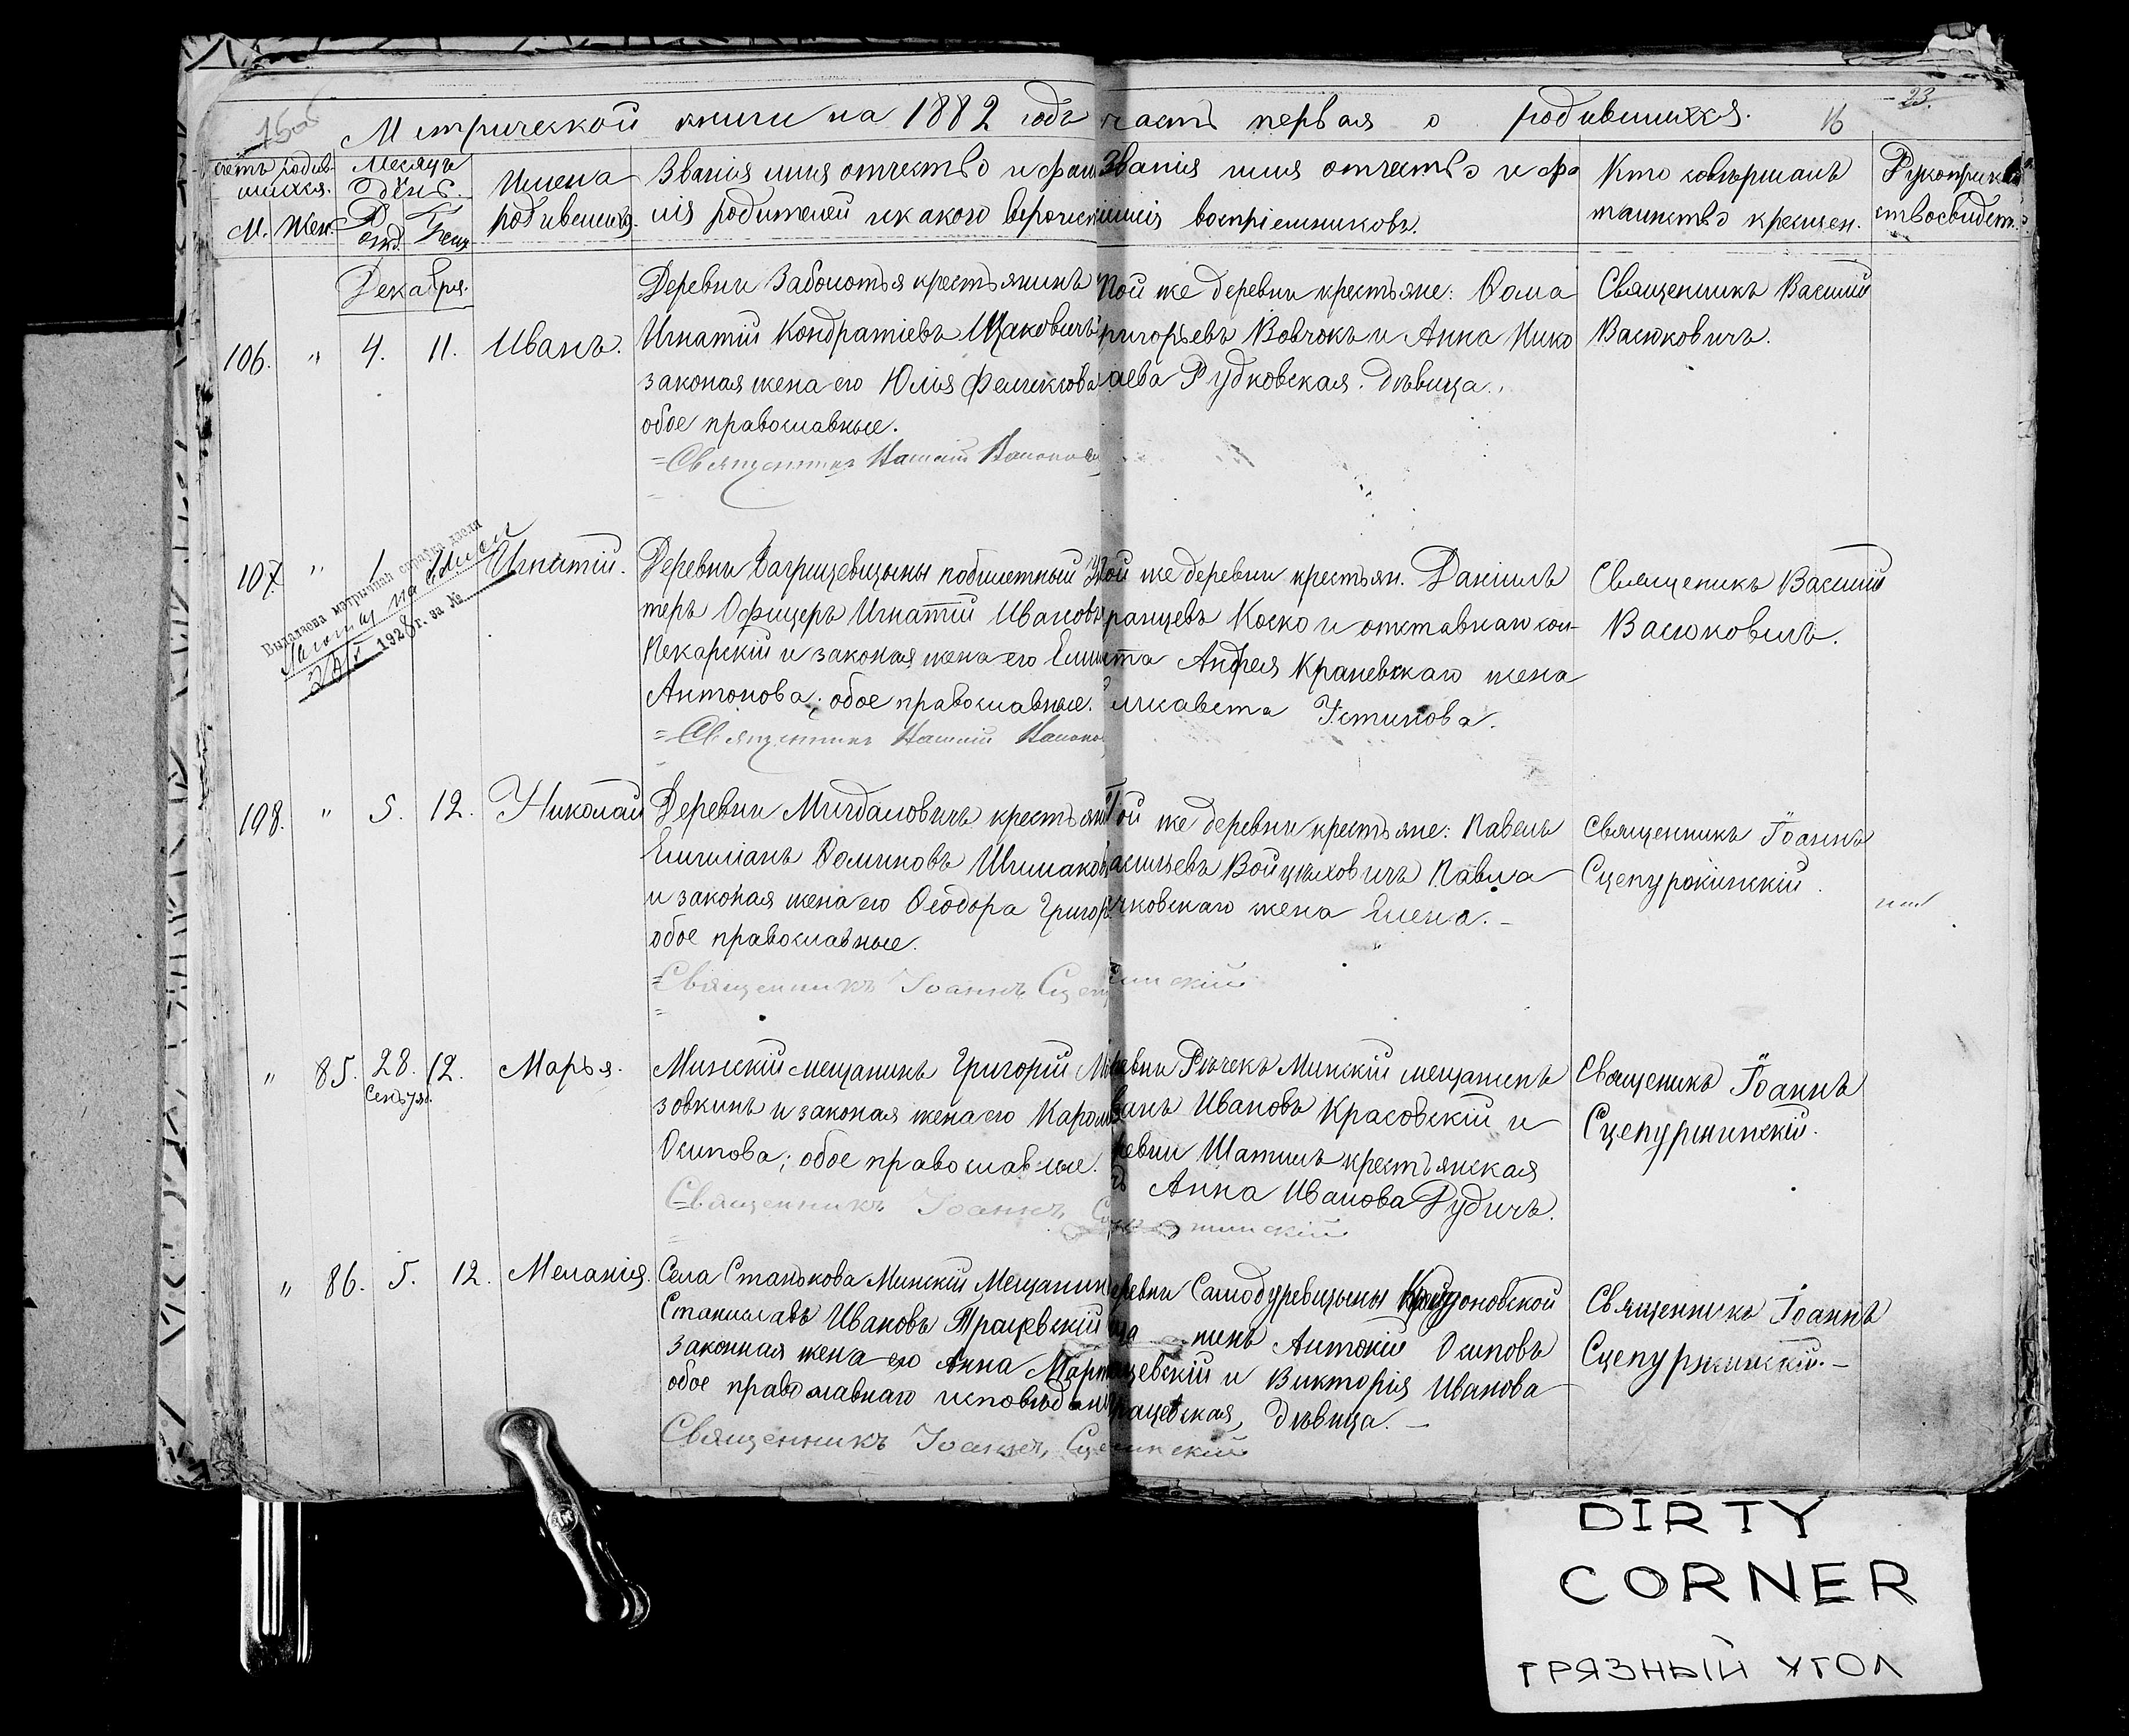 Метрической книги на 1882 годъ часть первая о родившихся. 16 23.
счетъ родив-
шихся.
М. Жен.
Месяцъ
День.
Рожд. Крещ.
Имена
родившихся.
Званія имя отчество и фами
лія родителей и какого вероиспо
Званія имя отчество и фа
милія воспріемниковъ.
Кто совершалъ
таинство крещен.
Рукоприклад
ство свидет.
Декабря.
106. " 4. 11. Иванъ.
Деревни Заболотья крестьянинъ
Игнатій Кондратіевъ
законая жена его Юлія
обое православные.
=Священникъ
Той же деревни крестьяне: Ѳома
Григорьевъ Вовчокъ и Анна Нико
лаева Рудковская. дѣвица.
Священникъ Василій
Васюковичъ.
107. " 1. Игнатій.
Выдадзена матрычная спраўка дзеля
1928 г. за №
Деревни
теръ Офицеръ Игнатій Ивановъ
Пекарскій и законая жена его
Антонова; обое православные.
=Священникъ
Той же деревни крестьян. Даніилъ
Коско и отставнаго сол-
та Андрея Краневскаго жена
Елисавета Устинова.
Священикъ Василій
Васюковичъ.
108. " 5. 12. Николай
Деревни Мигдаловичъ крестьян
Емиліанъ Ѳоминовъ
и законая жена его Ѳеодора Григор
обое православные.
=Священникъ Іоаннъ
Той же деревни крестьяне: Павелъ
Васильевъ Войцѣховичъ Павла
жена Елена.
Священникъ Іоаннъ
Сцепуржинскій.
" 85. 28. 12. Марья.
Сентяб.
Минскій мещанинъ Григорій
зовкинъ и законая жена его Карол
Осипова; обое православные.
Священникъ Іоаннъ
Рѣчекъ Минскій мещанинъ
Иванъ Ивановъ Красовскій и
деревни Шатилъ крестьянская
Анна Иванова Рудичъ.
Священикъ Іоаннъ
Сцепуржинскій.
" 86. 5. 12. Меланія.
Села Станькова Минскій Мещанин
Станиславъ Ивановъ Трацевскій
законная жена его Анна Март
обое православнаго исповѣдан
Священникъ Іоаннъ
деревни Самодуревщины Койдоновской
Антоній Осиповъ
и Викторія Иванова
Трацевская, дѣвица.
Священникъ Іоаннъ
Сцепуржинскій.
DIRTY
CORNER
ГРЯЗНЫЙ УГОЛ